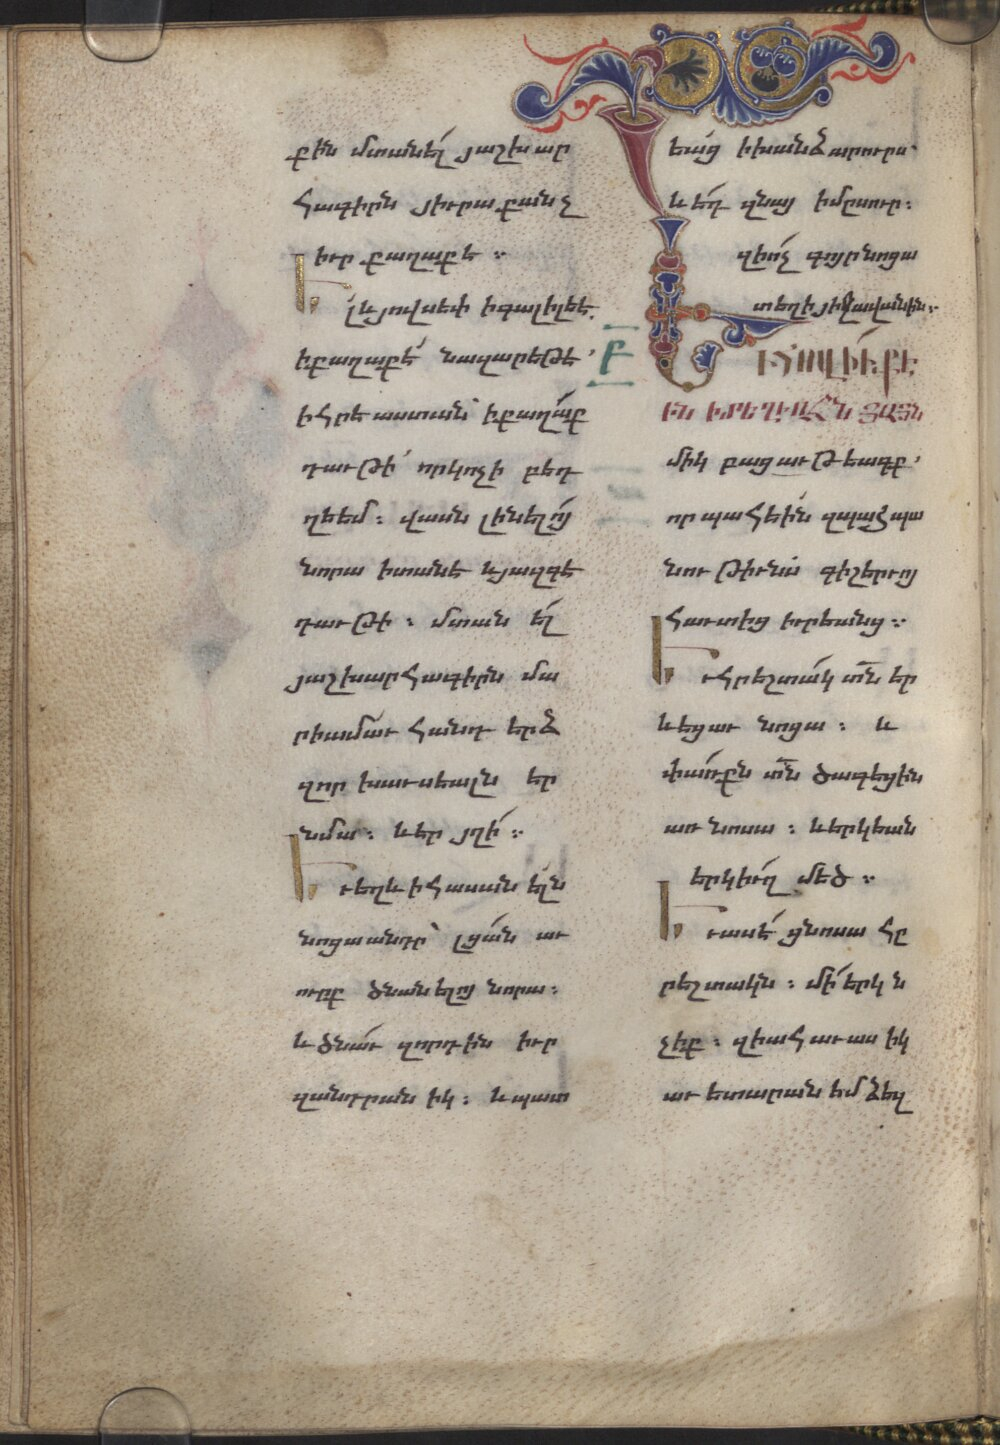 քին մտանել յաշխար
հագիրն յիւրաքանչ
իւր քաղաքե ։
Ել և յովսեփ ի գալիլեե.
ի քաղաքէ նազարեթե՝
ի հրեաստան՝ ի քաղաք
դաւթի՝ որ կոչի բեդ
ղեեմ ։ վասն լինելոյ
նորա ի տանե և յազգե
դաւթի ։ մտանել
յաշխարհագիրն մա
րիամաւ հանդերձ
զոր խաւսեալն եր
նմա ։ և եր յղի ։
Եւ եղև ի հասանելն
նոցա անդր՝ լցան աւ
ուրք ծնանելոյ նորա ։
և ծնաւ զորդին իւր
զանդրանիկ ։ և պատ
եաց ի խանձարուրս՝
և եդ զնա յ՚ի մըսուր ։
զի ոչ գոյր նոցա
տեղի յիջավանին ։
Բ
Եւ հովիւք է
ին ի տեղւոջն յայն
միկ բացաւթեագք՝
որ պահեին զպահպա
նութիւնս գիշերոյ
հաւտից իւրեանց ։
Եւ հրեշտակ տն եր
ևեցաւ նոցա ։ և
փառքն տն ծագեցին
առ նոսա ։ և երկեան
երկիւղ մեծ ։
Եւ ասէ ցնոսա հը
րեշտակն ։ մի երկն
չիք ։ զի ահաւասիկ
աւետարանեմ ձեզ